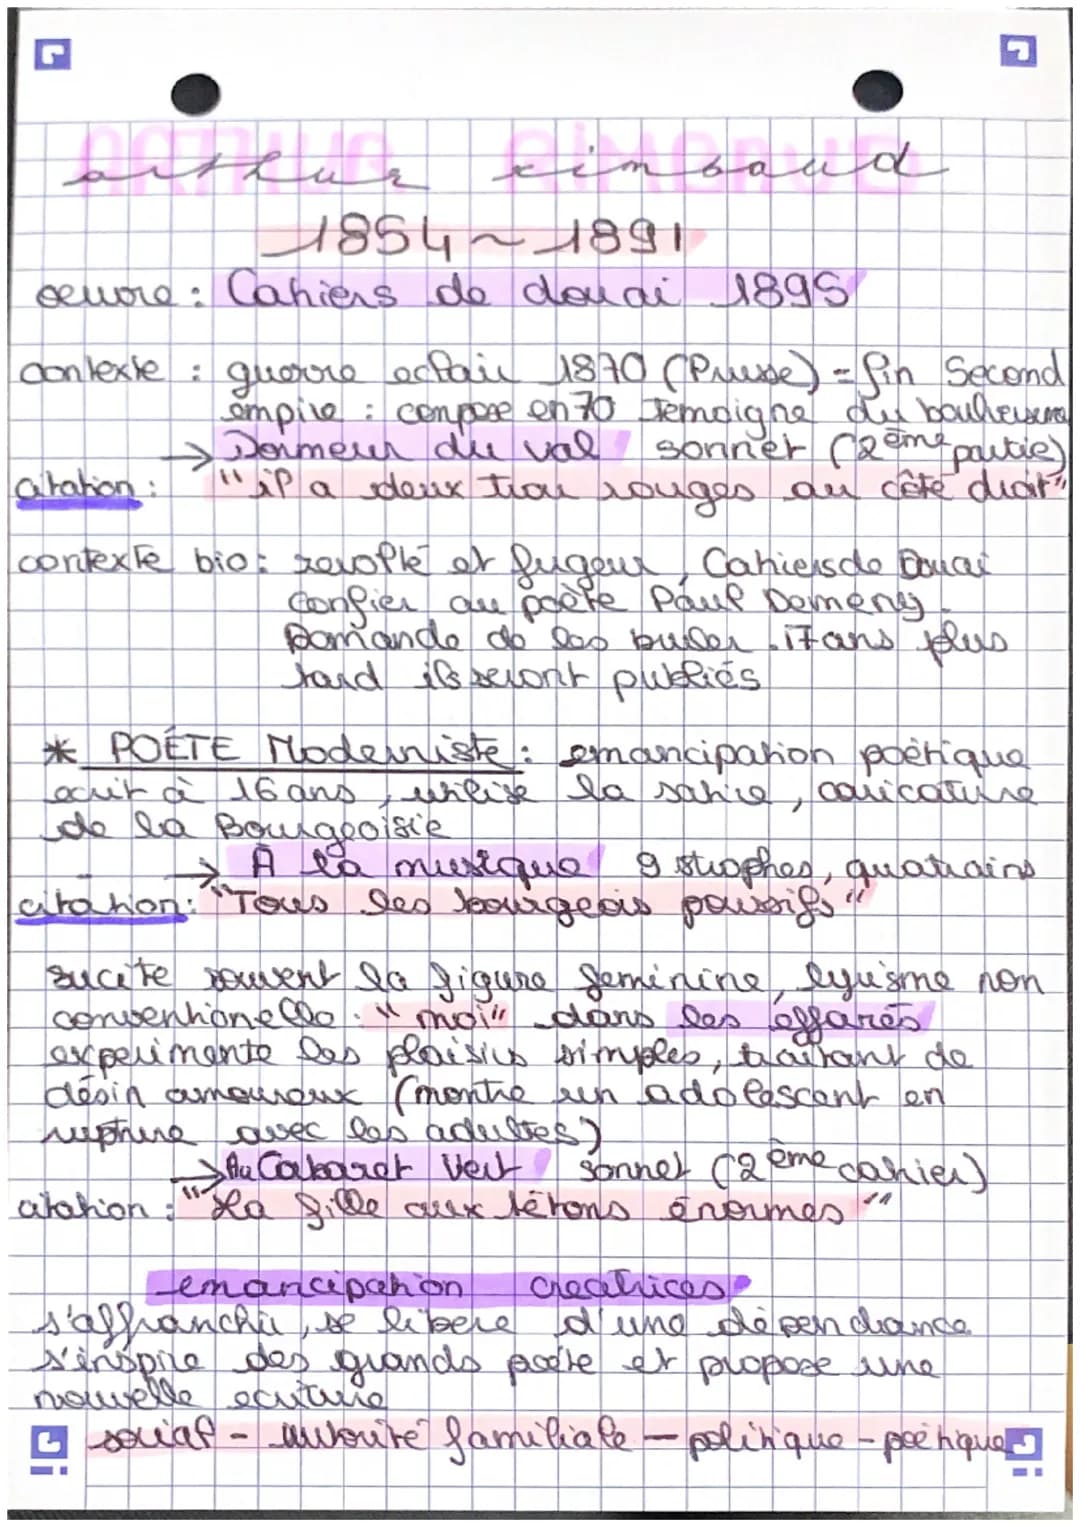 ARTHUR RIMBAUD
arthur rimbaud
1854 ~ 1891
oeuvre : Cahiers de douai 1895
contexte : guerre eclair 1870 (Prusse) = fin Second
empire : compose en 70 Temoigne du
→ Dormeur du val sonnet (2ème partie)
citation : "il a deux trou rouges au côté droit"
contexte bio : revolté et fugeur, Cahiers de Douai
Confier au poète Paul Demeny.
Demande de les bruler. 17 ans plus
tard ils seront publiés
* POÉTE Moderniste : emancipation poétique
ecrit à 16 ans, utilise la satire, caricature
de la Bourgeoisie
→ À la musique 9 strophes, quatrains
citation : "Tous les bourgeois poussifs"
sucite souvent la figure feminine, lyrisme non
conventionelle. "moi" dans les éffarés
experimente les plaisirs simples, traitant de
désir amoureux (montre un adolescent en
rupture avec les adultes)
→ Au Cabaret Vert sonnet (2ème cahier)
citation : "La fille aux tétons énormes"
emancipation creatrices
s'affranchir, se libere d'une dépendance
s'inspire des grands poète et propose une
nouvelle ecriture
social - autorité familiale - politique - poétique